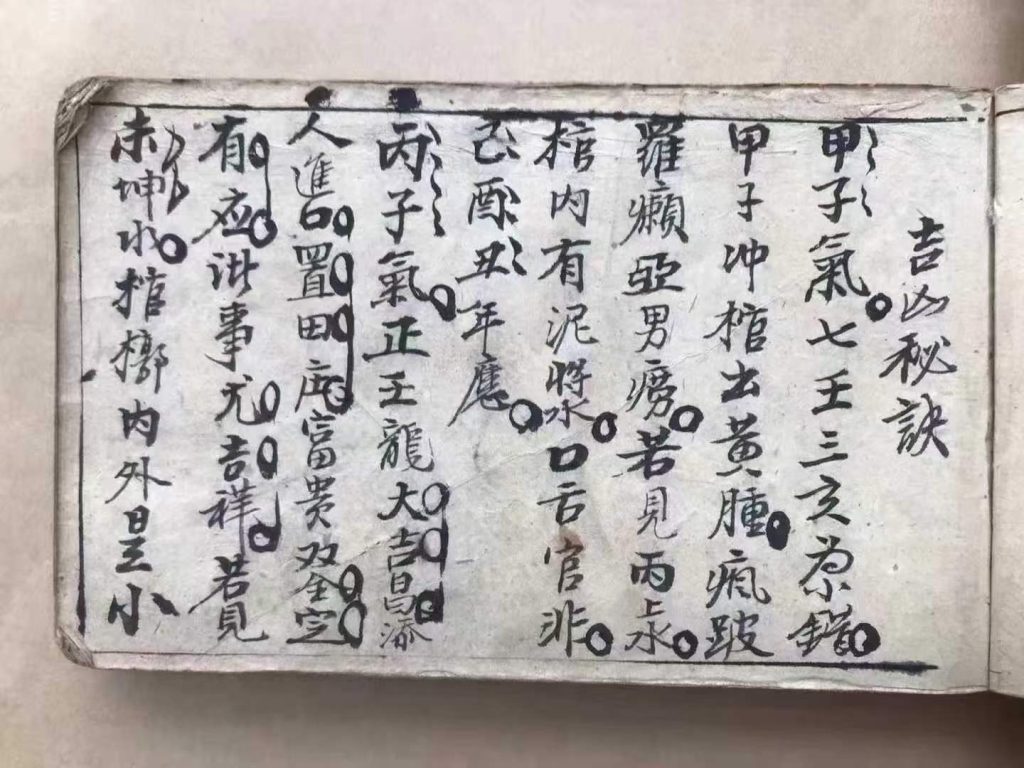 吉凶秘訣
甲子氣七壬三亥為錯
甲子冲棺出黄腫瘋跛
羅癩亞男癆若見丙上水
棺内有泥將水口舌官非
己酉丑年應
丙子氣正壬龍大吉昌添
人進口置田庄富贵双全定
有应洪事尤吉祥若見
未坤水棺槨内外皆小